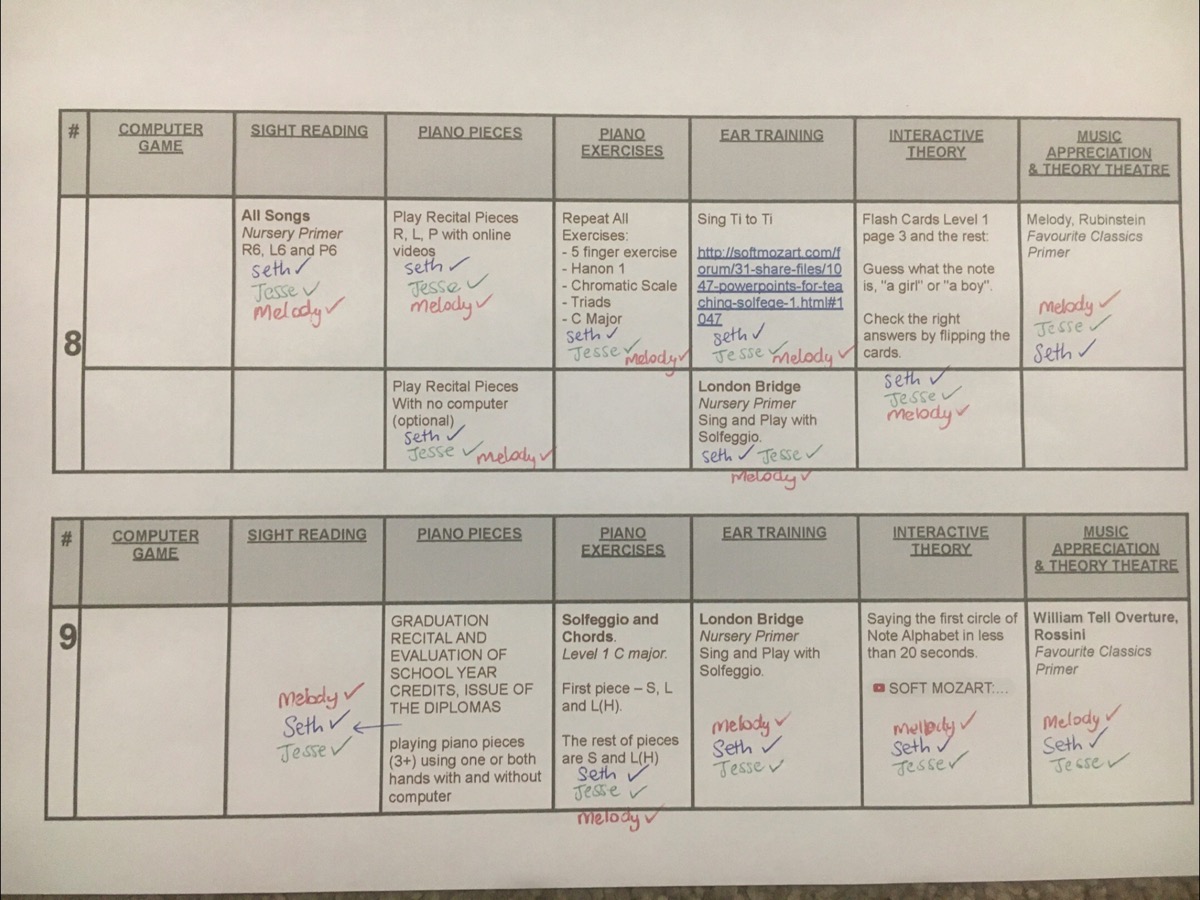 #
COMPUTER
GAME
SIGHT READING
PIANO PIECES
PIANO
EXERCISES
EAR TRAINING
INTERACTIVE
THEORY
MUSIC
APPRECIATION
& THEORY THEATRE
8
All Songs
Nursery Primer
R6, L6 and P6
Seth ✓
Jesse ✓
Melody ✓
Play Recital Pieces
R, L, P with online
videos
Seth ✓
Jesse ✓
Melody ✓
Repeat All
Exercises:
- 5 finger exercise
- Hanon 1
- Chromatic Scale
- Triads
- C Major
Seth ✓
Jesse ✓ Melody ✓
Sing Ti to Ti
http://softmozart.com/f
orum/31-share-files/10
47-powerpoints-for-tea
ching-solfege-1.html#1
047
Seth ✓
Jesse ✓ Melody ✓
Flash Cards Level 1
page 3 and the rest:
Guess what the note
is, "a girl" or "a boy".
Check the right
answers by flipping the
cards.
Seth ✓
Jesse ✓
Melody ✓
Melody, Rubinstein
Favourite Classics
Primer
Melody ✓
Jesse ✓
Seth ✓
Play Recital Pieces
With no computer
(optional)
Seth ✓
Jesse ✓ Melody ✓
London Bridge
Nursery Primer
Sing and Play with
Solfeggio.
Seth ✓ Jesse ✓
Melody ✓
#
COMPUTER
GAME
SIGHT READING
PIANO PIECES
PIANO
EXERCISES
EAR TRAINING
INTERACTIVE
THEORY
MUSIC
APPRECIATION
& THEORY THEATRE
9
Melody ✓
Seth ✓ ←
Jesse ✓
GRADUATION
RECITAL AND
EVALUATION OF
SCHOOL YEAR
CREDITS, ISSUE OF
THE DIPLOMAS
playing piano pieces
(3+) using one or both
hands with and without
computer
Solfeggio and
Chords.
Level 1 C major.
First piece – S, L
and L(H).
The rest of pieces
are S and L(H)
Seth ✓
Jesse ✓
Melody ✓
London Bridge
Nursery Primer
Sing and Play with
Solfeggio.
Melody ✓
Seth ✓
Jesse ✓
Saying the first circle of
Note Alphabet in less
than 20 seconds.
SOFT MOZART:...
Melody ✓
Seth ✓
Jesse ✓
William Tell Overture,
Rossini
Favourite Classics
Primer
Melody ✓
Seth ✓
Jesse ✓